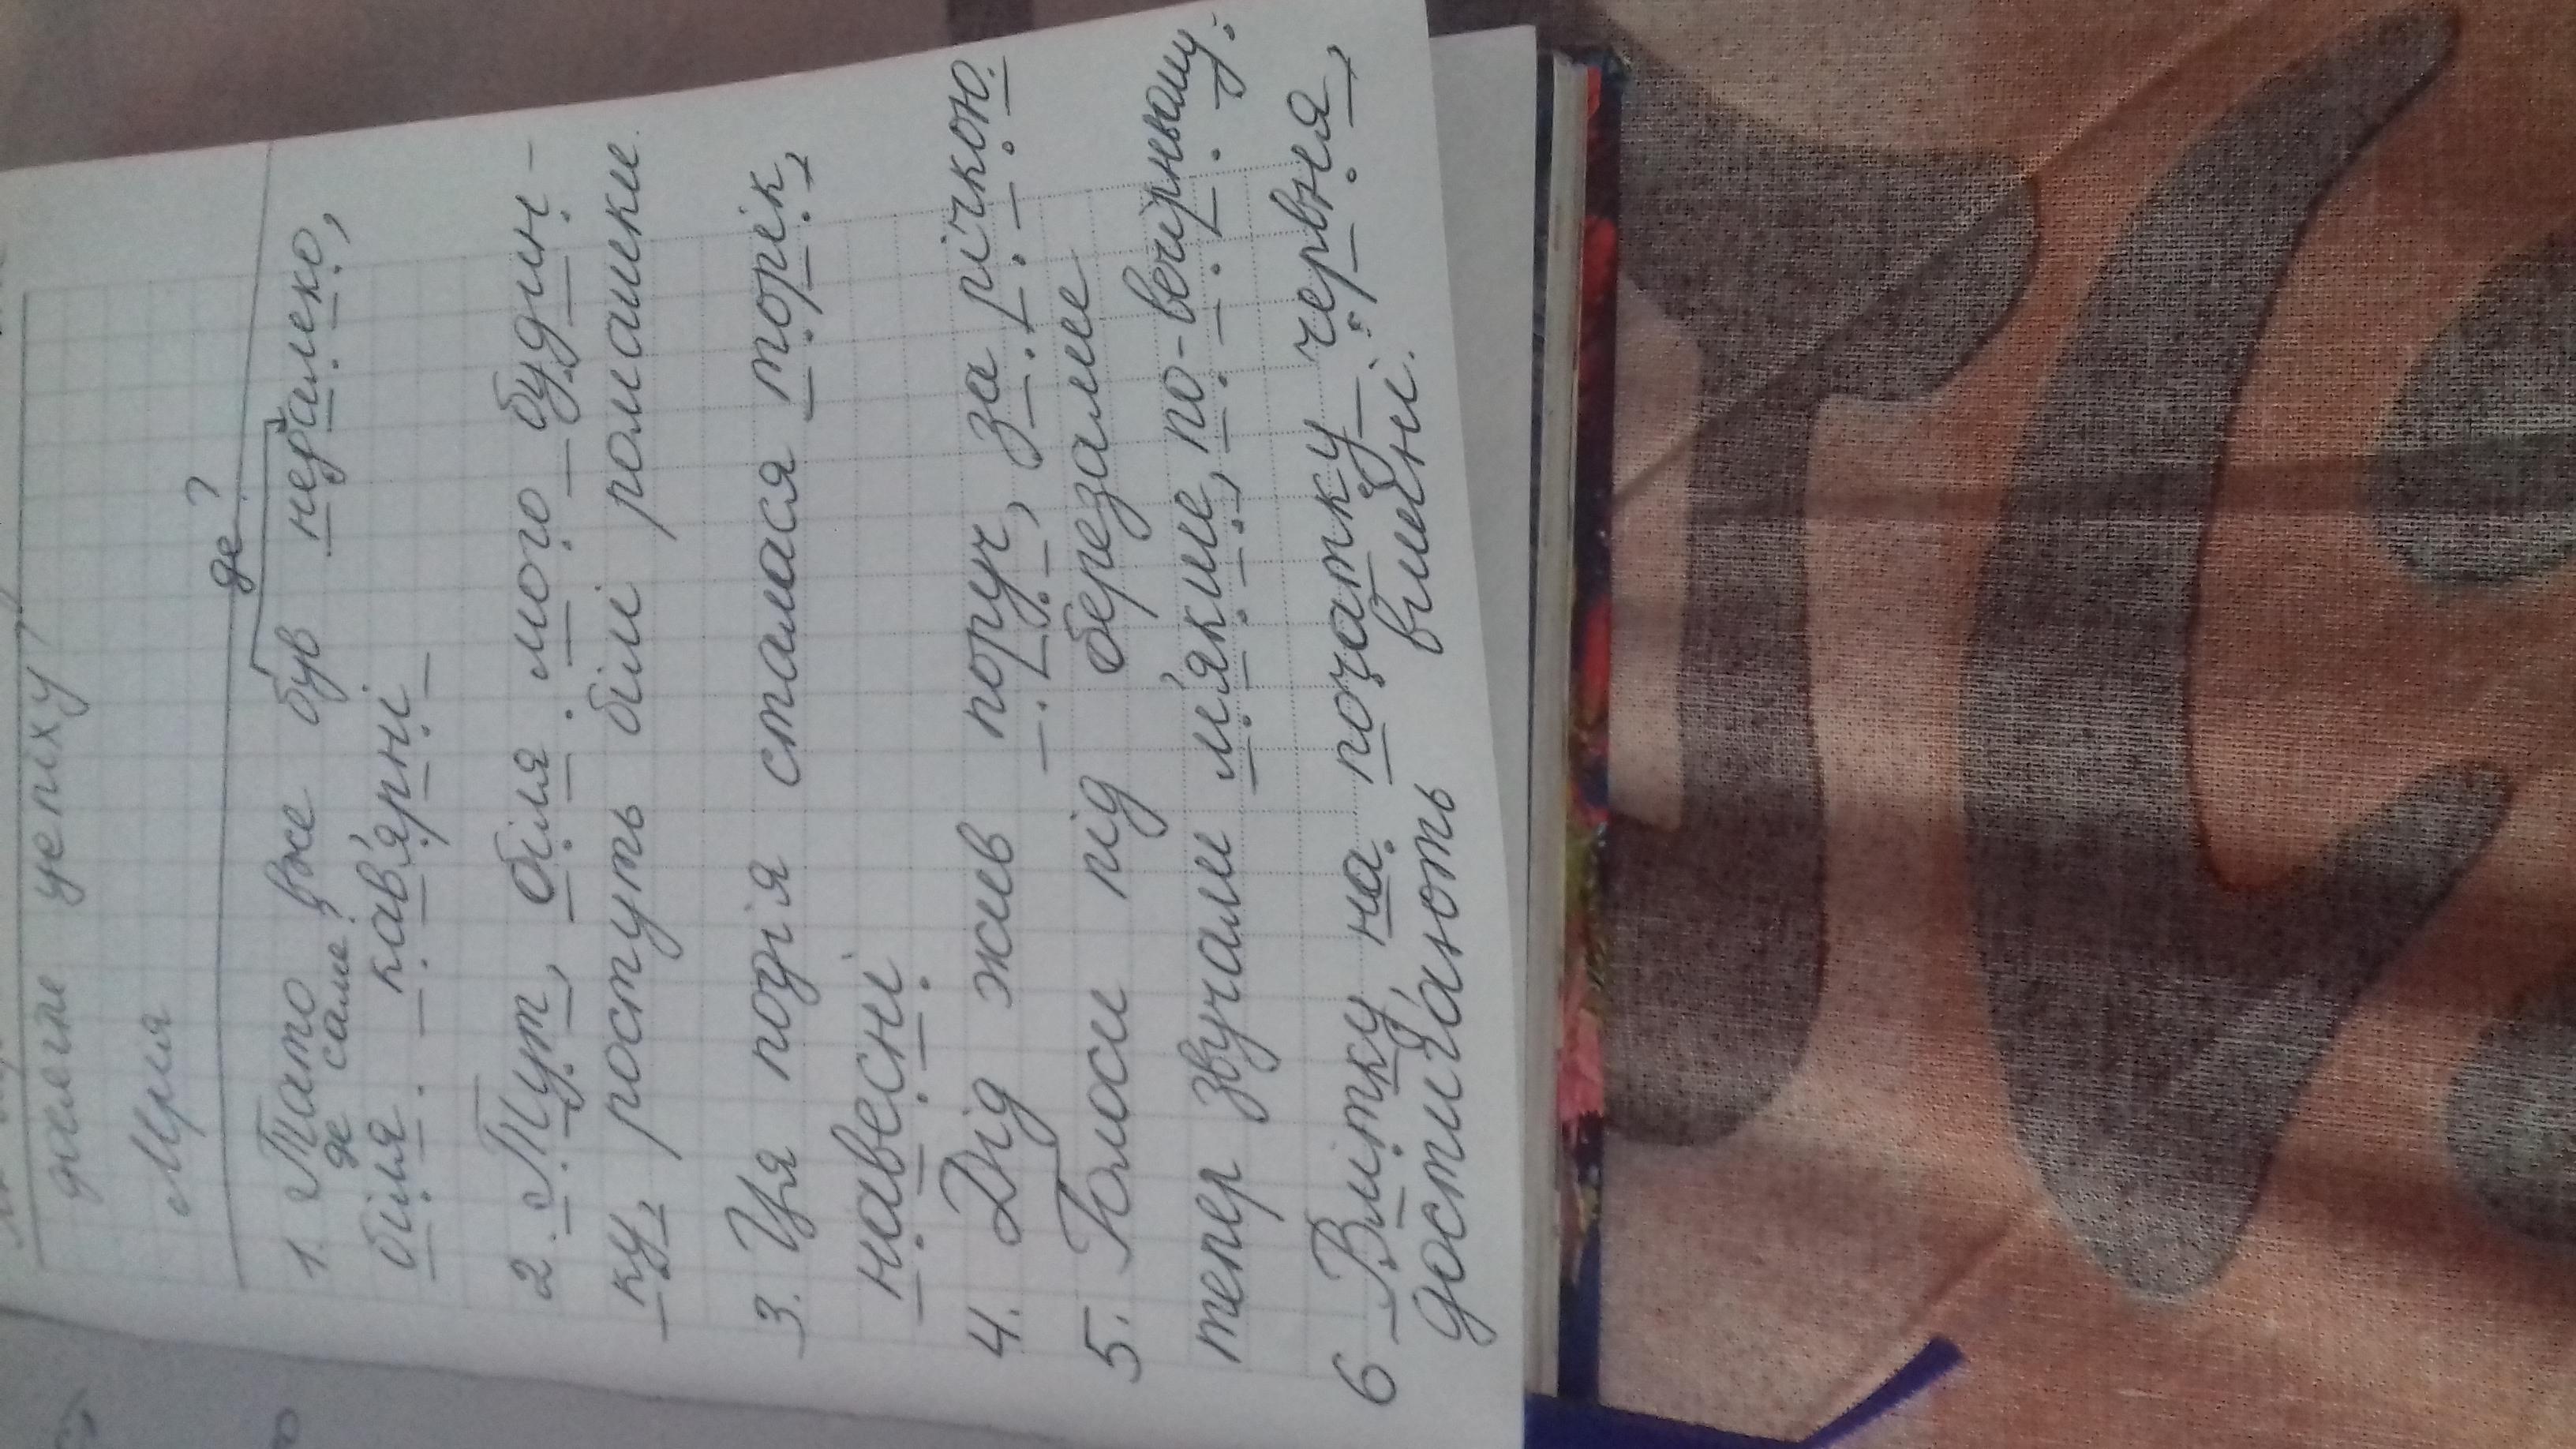 досягти успіху?
Мрія
де?
1. Тато вже був недалеко,
де саме?
біля кав'ярні
2. Тут, біля мого будин-
ку, ростуть білі ромашки.
3. Ця подія сталася торік,
навесні.
4. Дід жив поруч, за річкою.
5. Голоси під березами
тепер звучали м'якше, по-вечірньому.
6 Влітку, на початку червня,
достигають вишні.